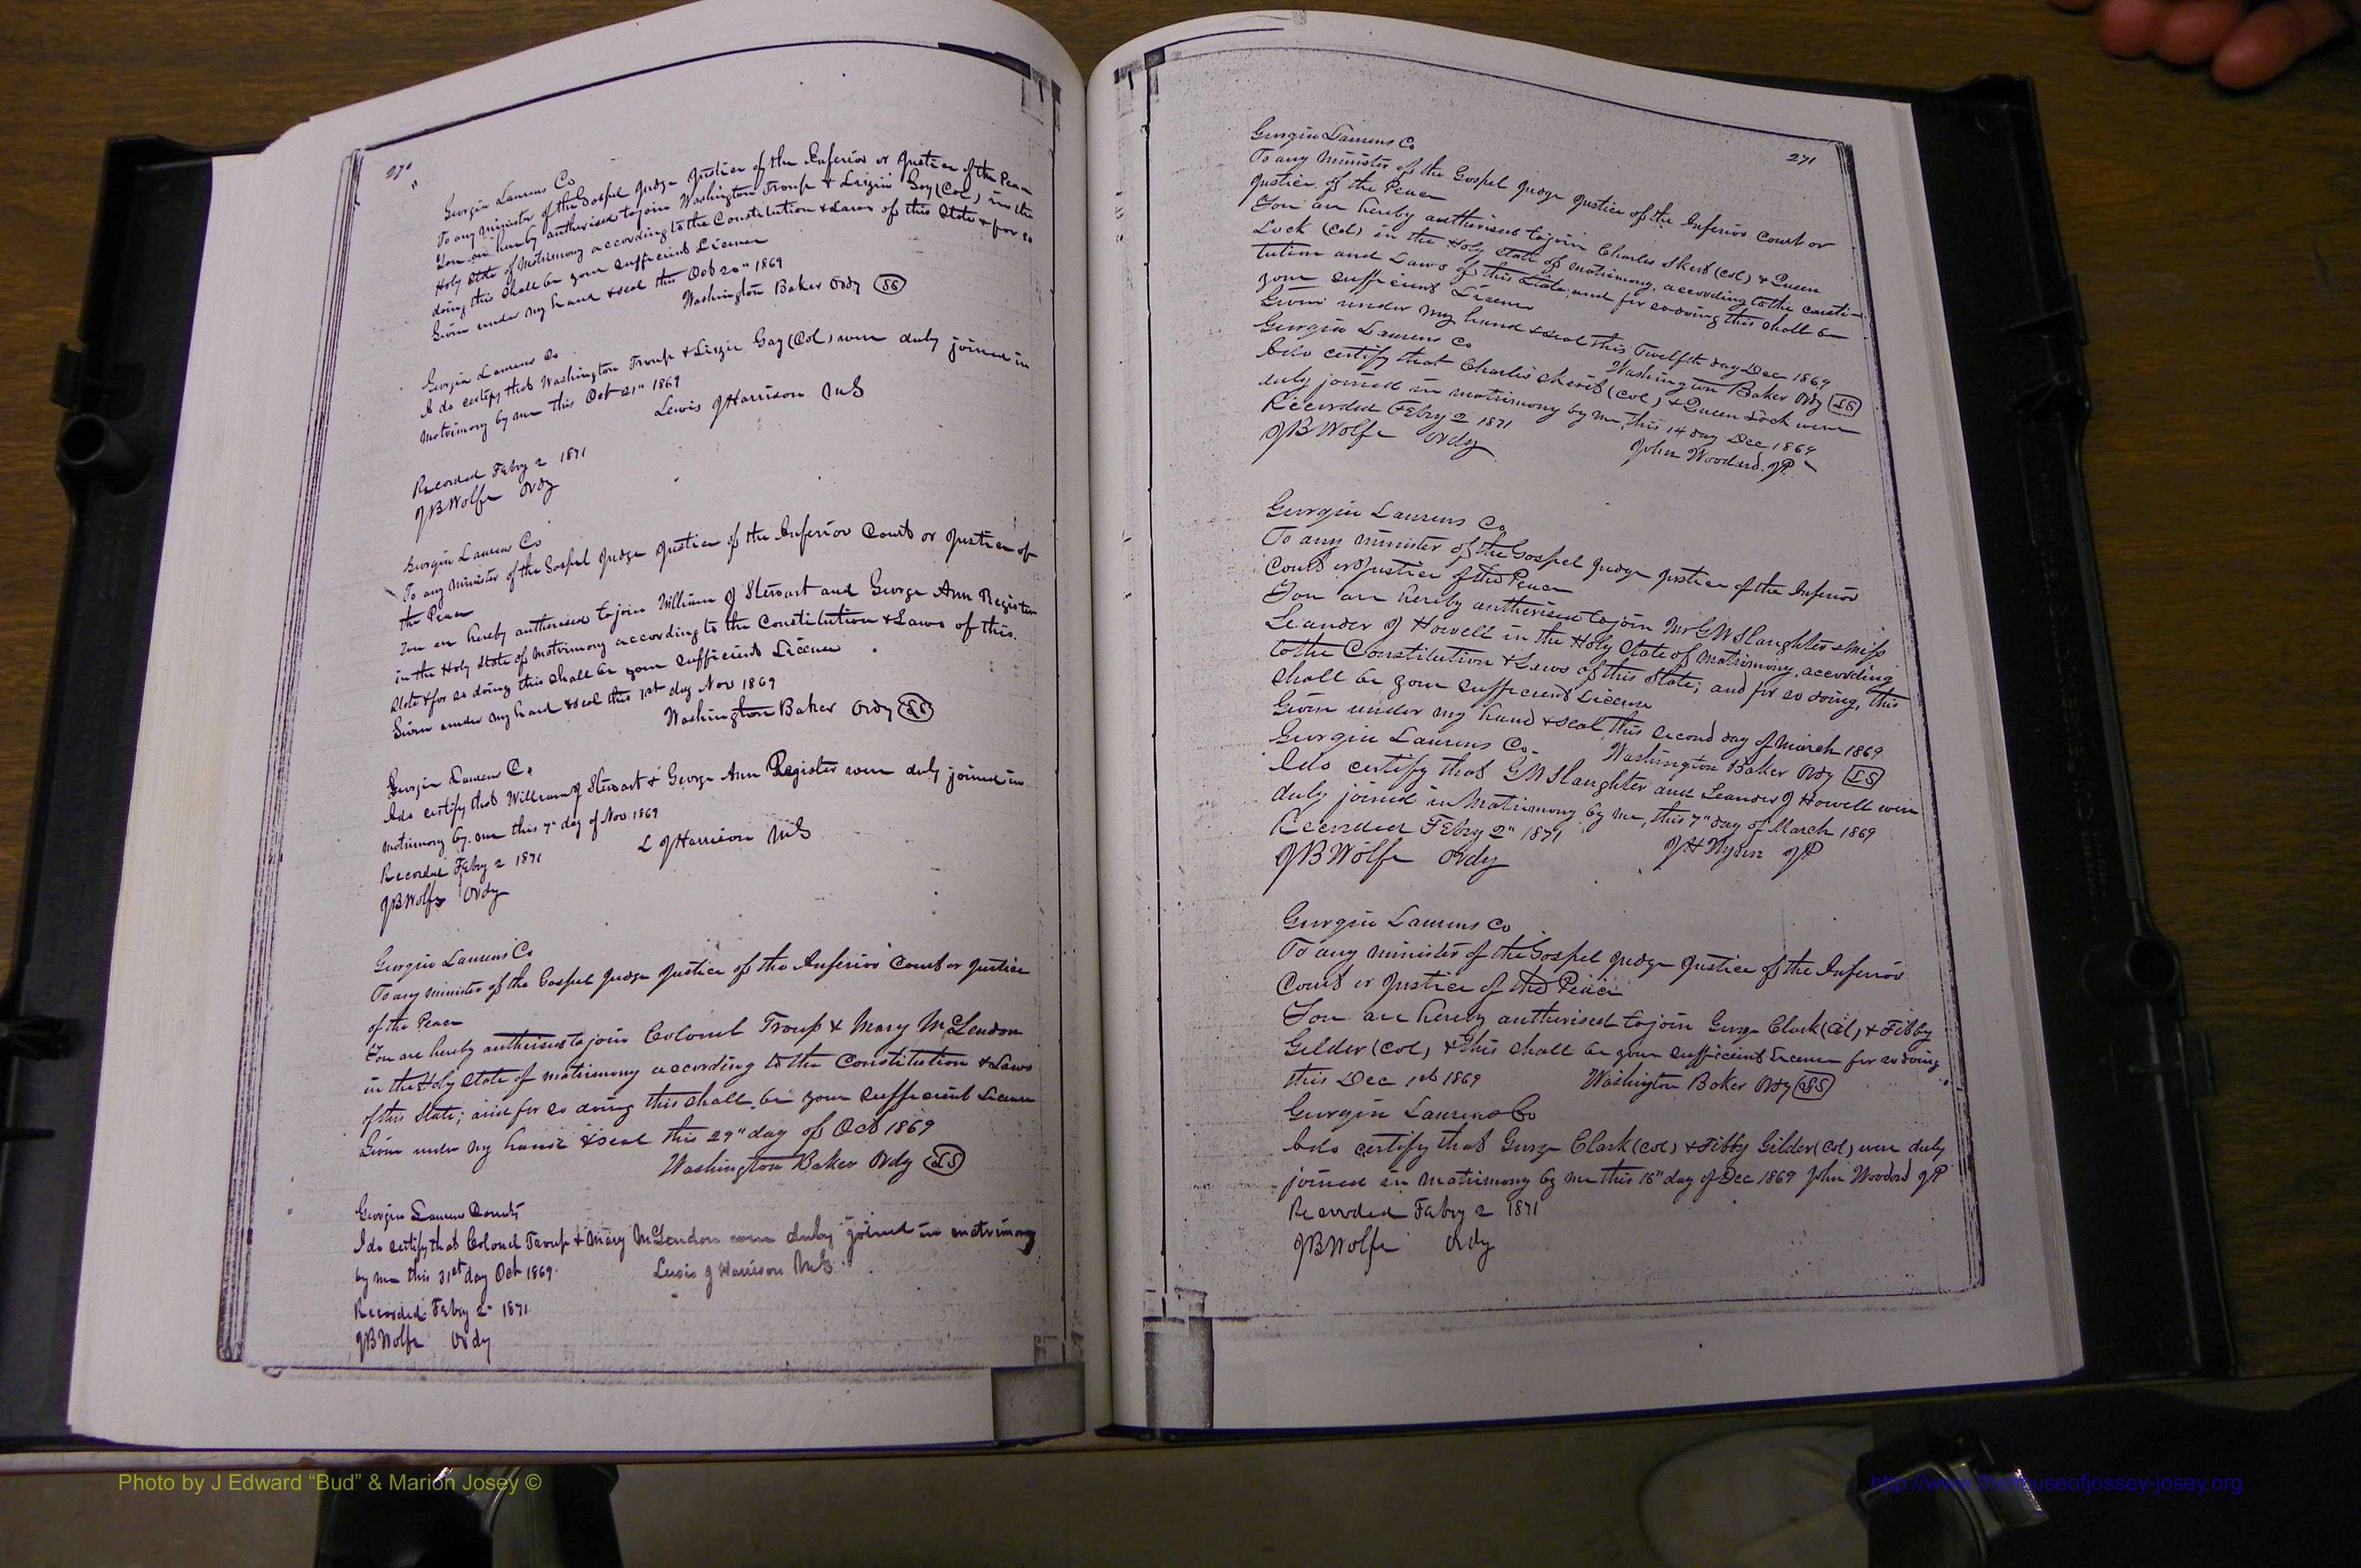 270
Georgia Laurens Co
To any minister of the Gospel Judge Justice of the Inferior or Justice of the Peace
You are hereby authorised to join Washington Troup & Lizzie Gay (Col) in the
Holy State of Matrimony according to the Constitution & Laws of this State & for so
doing this shall be your sufficient License
Given under my hand & seal this Oct 20" 1869
Washington Baker Ordy LS
Georgia Laurens Co
I do certify that Washington Troup & Lizzie Gay (Col) were duly joined in
matrimony by me this Oct 21" 1869
Lewis J Harrison MG
Recorded Febry 2 1871
JB Wolfe Ordy
Georgia Laurens Co
To any minister of the Gospel Judge Justice of the Inferior Court or Justice of
the Peace
You are hereby authorised to join William J Stewart and George Ann Register
in the Holy State of Matrimony according to the Constitution & Laws of this
State & for so doing this shall be your sufficient License
Given under my hand & seal this 1st day Nov 1869
Washington Baker Ordy LS
Georgia Laurens Co
I do certify that William J Stewart & George Ann Register were duly joined in
matrimony by me this 7" day of Nov 1869
L J Harrison MG
Recorded Febry 2 1871
JB Wolfe Ordy
Georgia Laurens Co
To any minister of the Gospel Judge Justice of the Inferior Court or Justice
of the Peace
You are hereby authorised to join Colonel Troup & Mary McLendon
in the Holy State of matrimony according to the Constitution & Laws
of this State; and for so doing this shall be your sufficient License
Given under my hand & seal this 29" day of Oct 1869
Washington Baker Ordy LS
Georgia Laurens County
I do certify that Colonel Troup & Mary McLendon were duly joined in matrimony
by me this 31st day Oct 1869
Lewis J Harrison MG
Recorded Febry 2" 1871
JB Wolfe Ordy
271
Georgia Laurens Co
To any Minister of the Gospel Judge Justice of the Inferior Court or
Justice of the Peace
You are hereby authorised to join Charles (Col) & Queen
Lock (Col) in the Holy State of matrimony, according to the consti-
tution and Laws of this State, and for so doing this shall be
your sufficient License
Given under my hand & seal this Twelfth day Dec 1869
Washington Baker Ordy LS
Georgia Laurens Co
I do certify that Charles (Col) & Queen Lock were
duly joined in matrimony by me, this 14 day Dec 1869
John Woodard JP
Recorded Febry 2 1871
JB Wolfe Ordy
Georgia Laurens Co
To any minister of the Gospel Judge Justice of the Inferior
Court or Justice of the Peace
You are hereby authorised to join Mr GW Slaughter & Miss
Leander J Howell in the Holy State of Matrimony, according
to the Constitution & Laws of this State; and for so doing, this
shall be your sufficient License
Given under my hand & seal, this second day of March 1869
Washington Baker Ordy LS
Georgia Laurens Co.
I do certify that GW Slaughter and Leander J Howell were
duly joined in Matrimony by me, this 7" day of March 1869
JH JP
Recorded Febry 2" 1871
JB Wolfe Ordy
Georgia Laurens Co
To any minister of the Gospel Judge Justice of the Inferior
Court or Justice of the Peace
You are hereby authorised to join George Clark (Col) & Fibby
Gilder (Col) & this shall be your sufficient License for so doing
this Dec 1st 1869 Washington Baker Ordy LS
Georgia Laurens Co
I do certify that George Clark (Col) & Fibby Gilder (Col) were duly
joined in matrimony by me this 16" day of Dec 1869 John Woodard JP
Recorded Febry 2 1871
JB Wolfe Ordy
Photo by J Edward “Bud” & Marion Josey ©
http://www.thehouseofjossey-josey.org